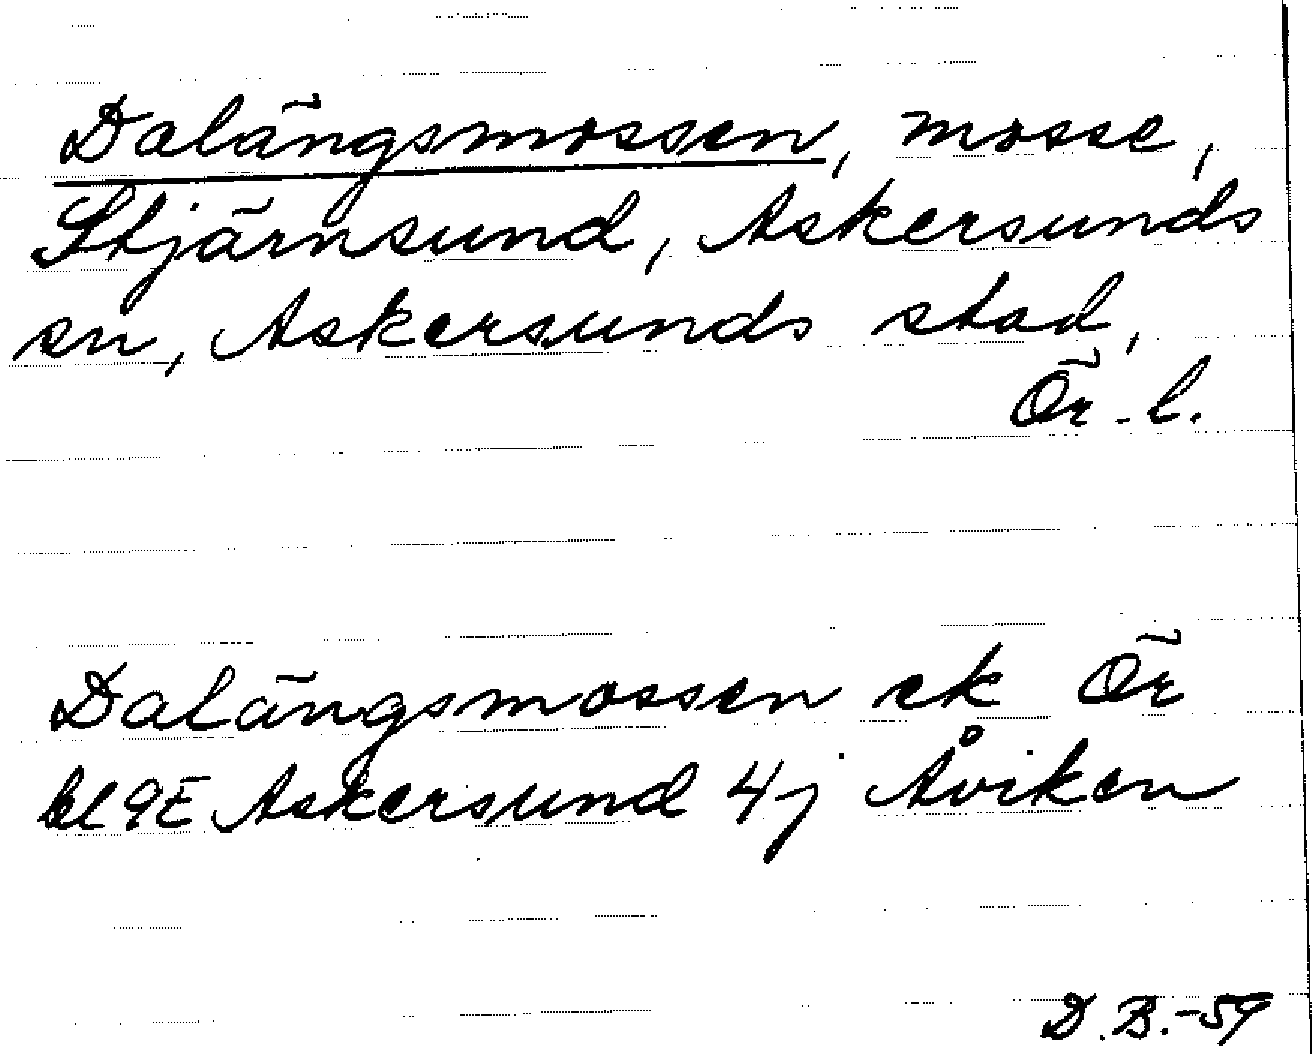 Dalängsmossen, mosse,
Stjärnsund, Askersunds
sn, Askersunds stad,
Ör. l.
Dalängsmossen ek Ör
bl 9E Askersund 4j Åviken
D.B.-59